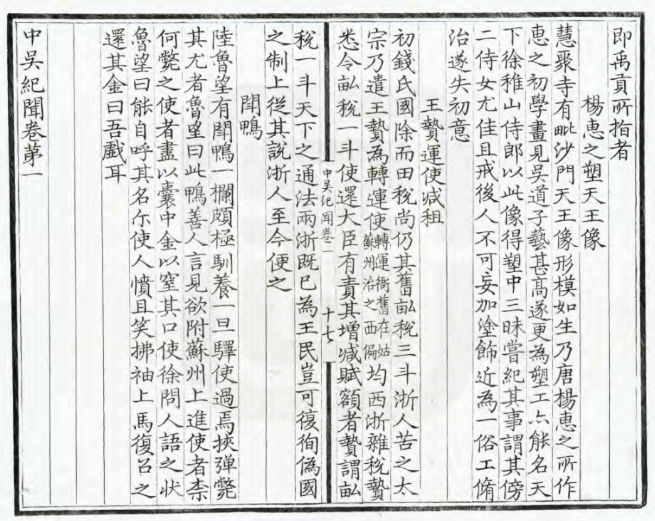 即禹貢所指者
楊惠之塑天王像
慧聚寺有毗沙門天王像形模如生乃唐楊惠之所作
惠之初學畫見吳道子藝甚髙遂更為塑工亦能名天
下徐稚山侍郎以此像得塑中三昧嘗紀其事謂其傍
二侍女尤佳且戒後人不可妄加塗飾近為一俗工脩
治遂失初意
王贄運使减租
初錢氏國除而田稅尚仍其舊畝稅三斗浙人苦之太
宗乃遣王贄為轉運使轉運衙舊在姑蘇州治之西偏均西浙雜稅贄
悉令畝稅一斗使還大臣有責其增减賦額者贄謂畝
中吳紀聞卷一
十七
稅一斗天下之通法兩浙既已為王民豈可復徇偽國
之制上從其說浙人至今便之
鬥鴨
陸魯望有鬥鴨一欄頗極馴養一旦驛使過焉挾彈斃
其尤者魯望曰此鴨善人言見欲附蘇州上進使者柰
何斃之使者盡以囊中金以窒其口使徐問人語之狀
魯望曰能自呼其名尓使人憤且笑拂袖上馬復召之
還其金曰吾戲耳
中吳紀聞卷第一